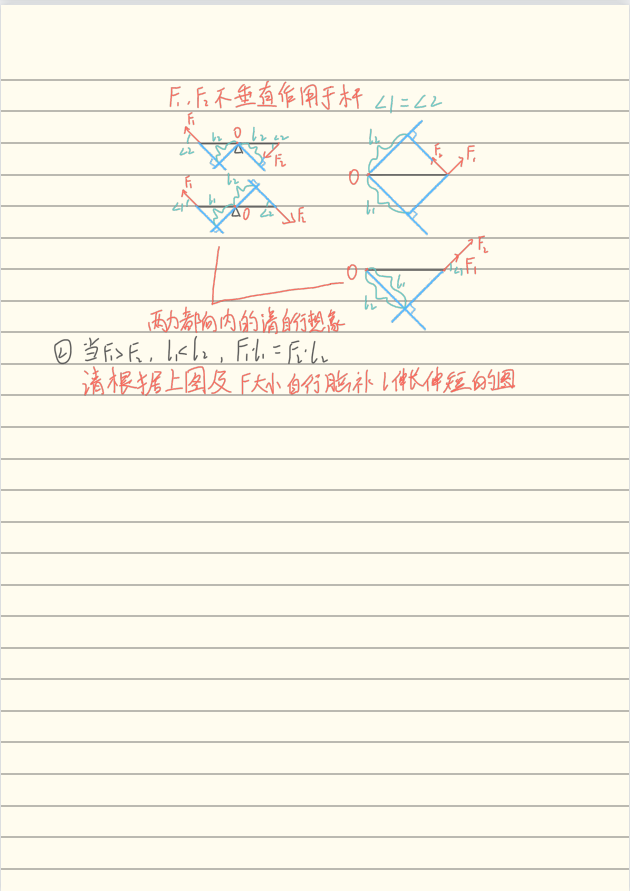 F₁,F₂不垂直作用于杆 ∠1=∠2
F₁ l₂ O l₂ ∠2
∠2 F₂
l₂ F₂ F₁
O l₁
F₁ l₂
∠1 l₁ O ∠2 F₂
F₂
O l₁ ∠1 F₁
l₂
两力都向内的请自行想象
② 当F₁>F₂, l₁<l₂, F₁·l₁=F₂·l₂
请根据上图及F大小自行脑补l伸长伸短的图